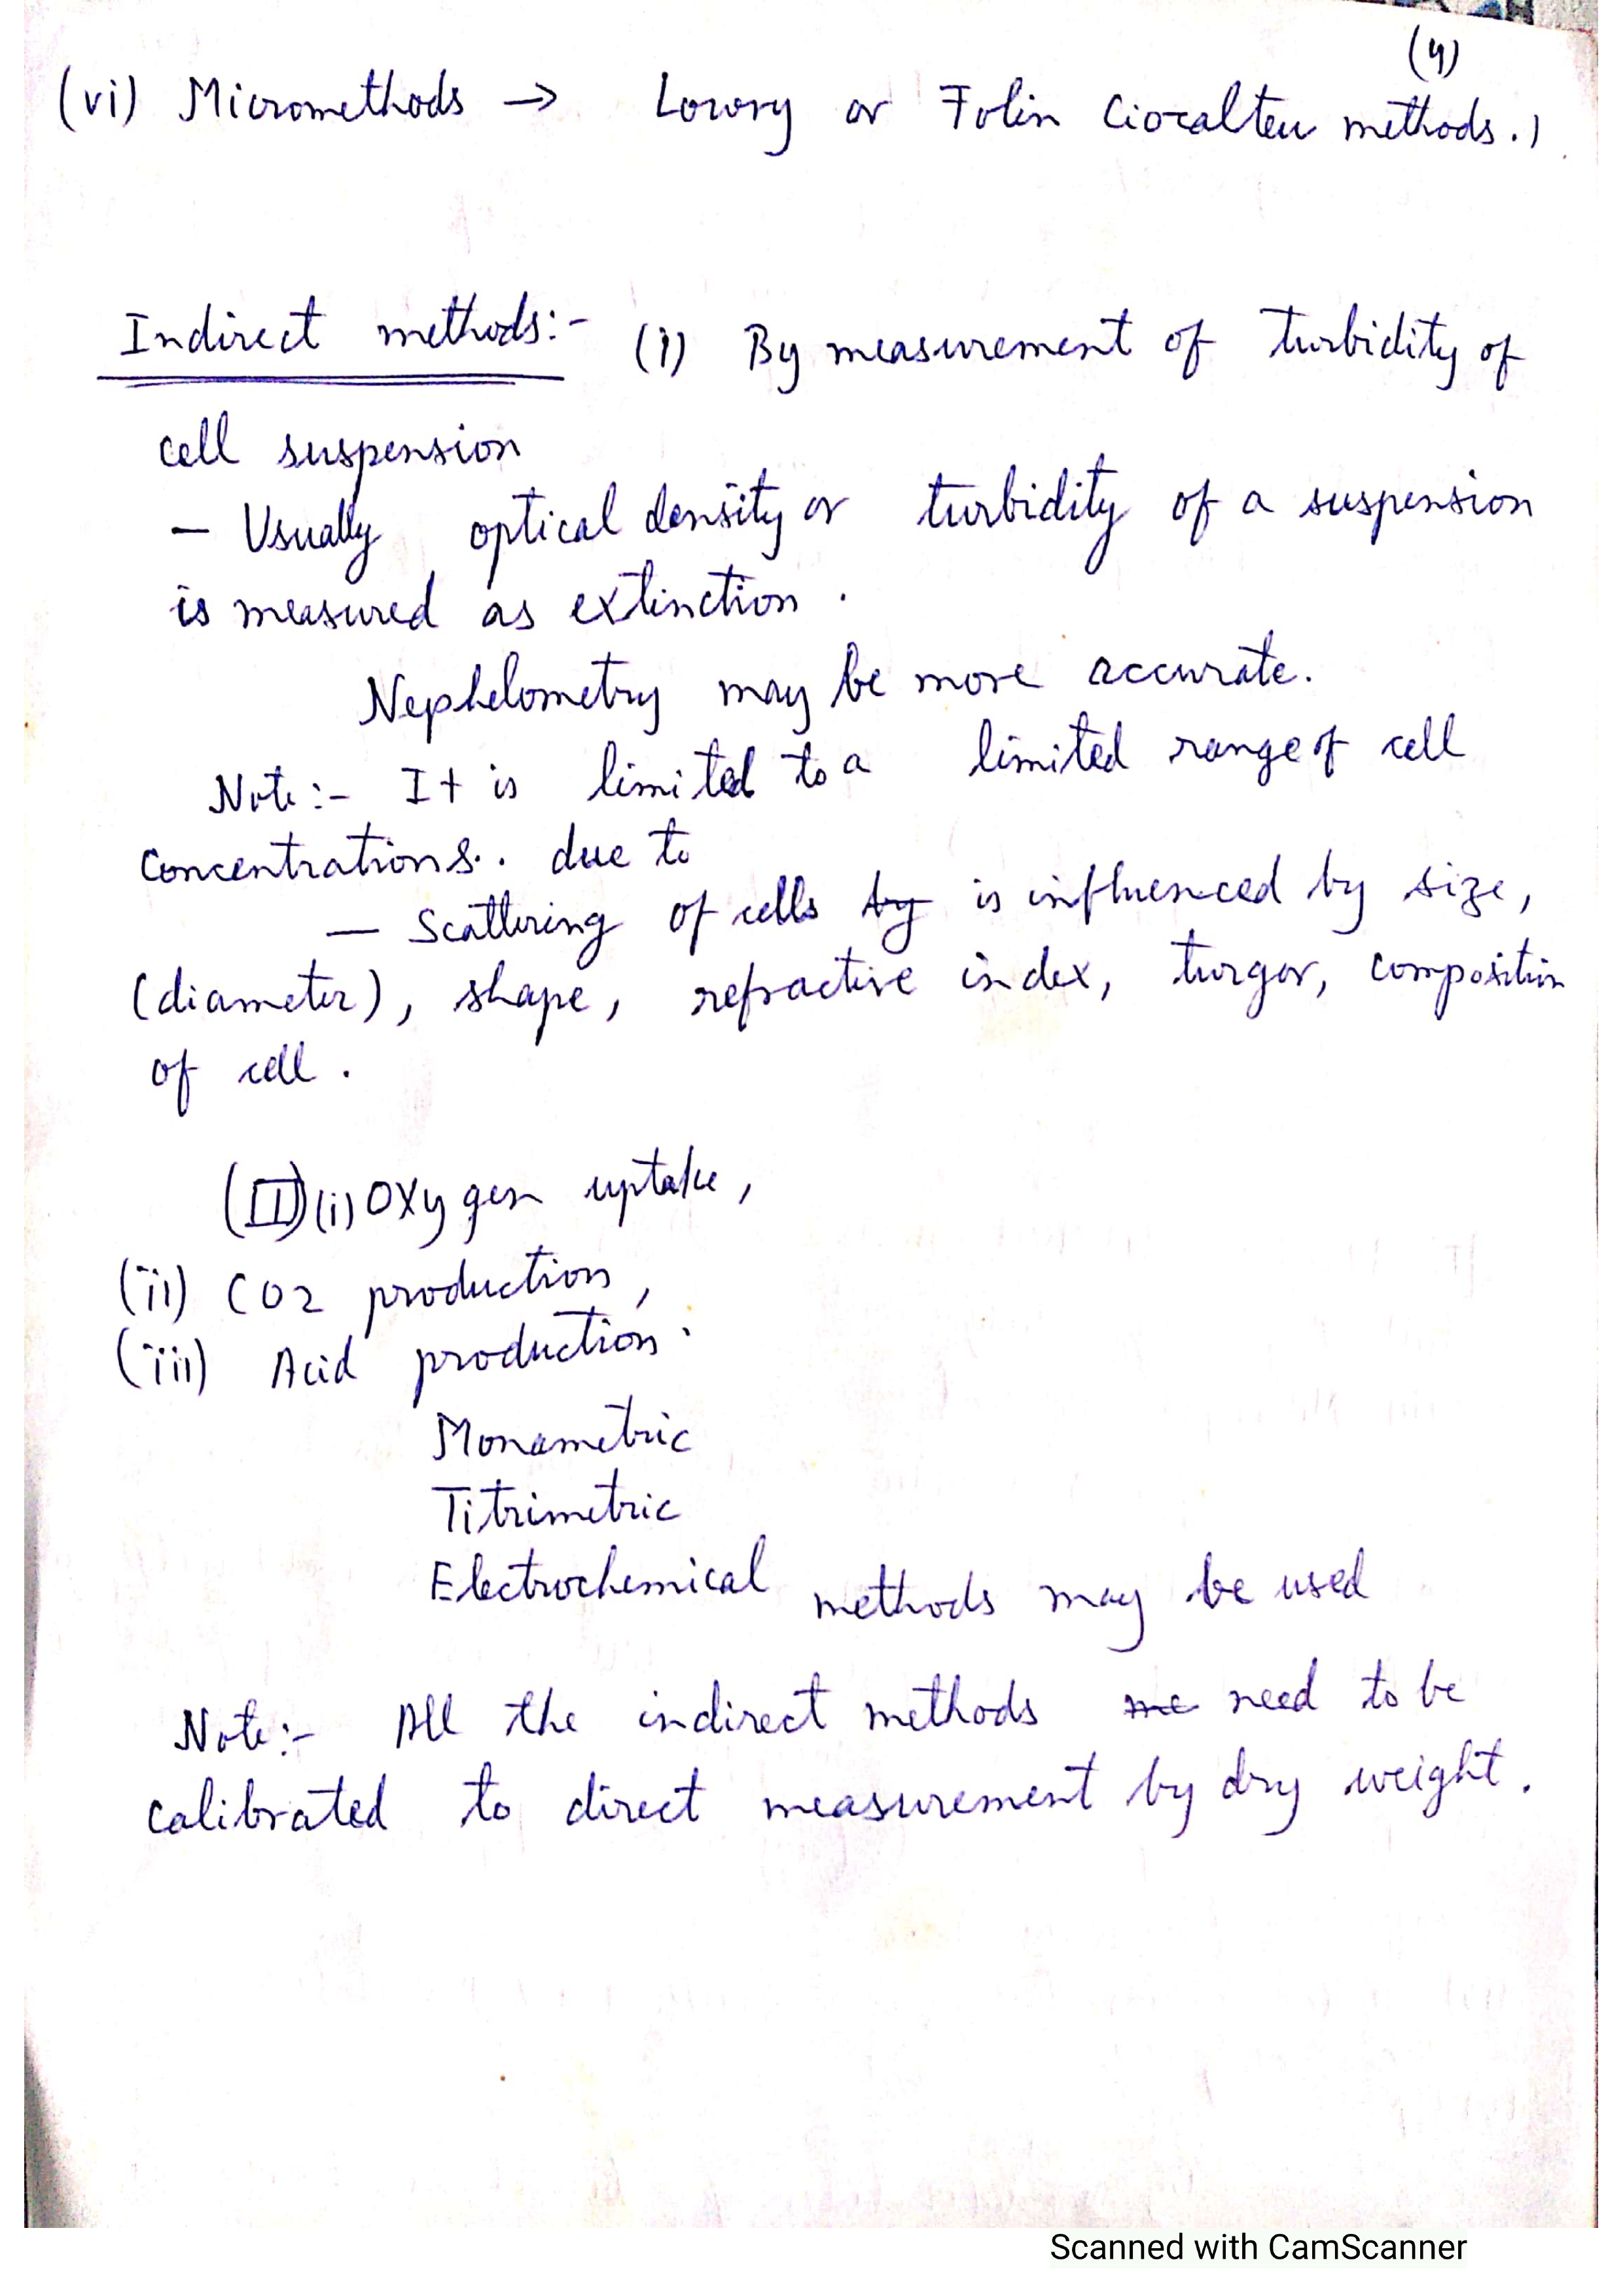 (4)
(vi) Micromethods → Lowry or Folin Ciocalteu methods.)
Indirect methods:- (i) By measurement of turbidity of
cell suspension
— Usually optical density or turbidity of a suspension
is measured as extinction.
Nephelometry may be more accurate.
Note:- It is limited to a limited range of cell
concentrations.. due to
— Scattering of cells by is influenced by size,
(diameter), shape, refractive index, turgor, composition
of cell.
(II) (i) Oxygen uptake,
(ii) CO2 production,
(iii) Acid production.
Monametric
Titrimetric
Electrochemical methods may be used
Note:- All the indirect methods me need to be
calibrated to direct measurement by dry weight.
Scanned with CamScanner